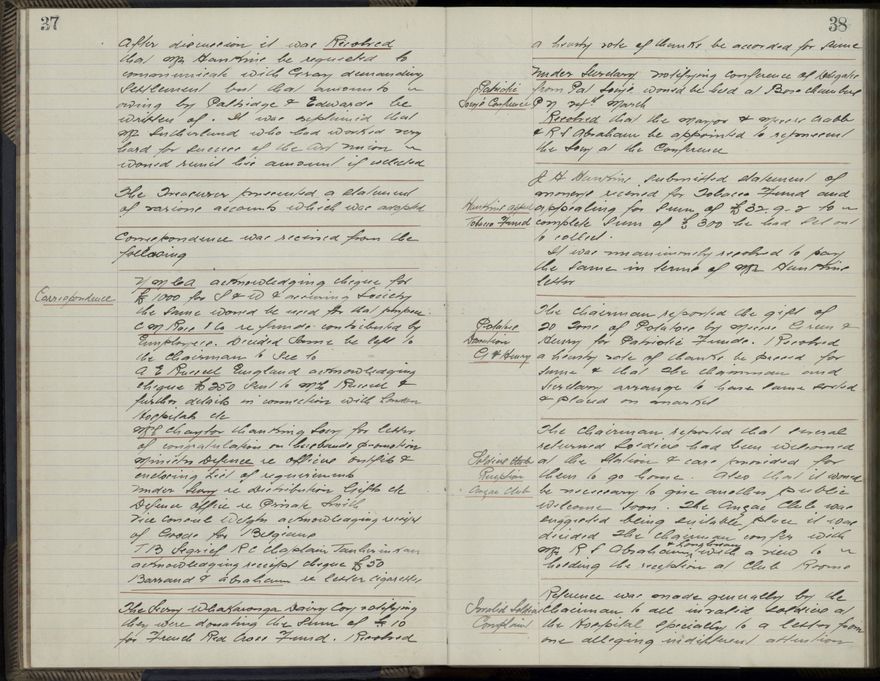 37
After discussion it was Resolved
that Mr Hankins be requested to
communicate with Gray demanding
Settlement but that amounts
owing by Patridge & Edwards be
written of. It was explained that
Mr Sutherland who had worked very
hard for success of the Art Union
would remit his amount if collected
The Treasurer presented a statement
of various accounts which was adopted
Correspondence was received from the
following
Correspondence
Y M C A acknowledging cheque for
£1000 for S & W & assuring Society
the same would be used for that purpose
C M Ross & Co re funds contributed by
Employees. Decided same be left to
the Chairman to see to
A E Russell England acknowledging
cheque £250 sent to Mrs Russell &
further details in connection with London
Hospitals etc
Mrs Chaytor thanking Socy for letter
of congratulation on husbands promotion
Ministry Defence re Officers outfits &
enclosing list of requirements
Under Secy re Distribution Gifts etc
Defence office re Private Smith
Vice Consul Welgtn acknowledging receipt
of Goods for Belgians
T B Segrief R C Chaplain Tauherinikau
acknowledging receipt cheque £50
Barraud & Abraham re letter Cigarettes
The Secy Whakaronga Dairy Coy notifying
they were donating the sum of £10
for French Red Cross Fund. Resolved
38
a hearty vote of thanks be accorded for same
Patriotic
Socys Conference
Under Secretary notifying conference of Delegates
from Pat Socys would be held at Boro Chambers
P N March
Resolved that the Mayor & Messrs Crabbe
& R S Abraham be appointed to represent
the Socy at the Conference
Hankins acct
Tobacco Fund
J H Hankins submitted statement of
moneys received for Tobacco Fund and
appealing for sum of £32. 9. 2 to
complete sum of £300 he had set out
to collect.
It was unanimously resolved to pay
the same in terms of Mr Hankins
letter
Potatoe
Donation
G & Henry
The Chairman reported the gift of
20 Tons of Potatoes by Messrs Green &
Henry for Patriotic Funds. Resolved
a hearty vote of thanks be passed for
same & that the Chairman and
Secretary arrange to have same sorted
& placed on market
Soldiers Club
Reception
Anzac Club
The Chairman reported that several
returned Soldiers had been welcomed
at the Station & cars provided for
them to go home. Also that it would
be necessary to give another public
welcome soon. The Anzac Club was
suggested being suitable place it was
decided the Chairman confer with
Mr R S Abraham & Longbeam with a view to
holding the reception at Club Rooms
Invalid Soldiers
Complaint
Reference was made generally by the
Chairman to all invalid soldiers at
the Hospital specially to a letter from
one alleging indifferent attention